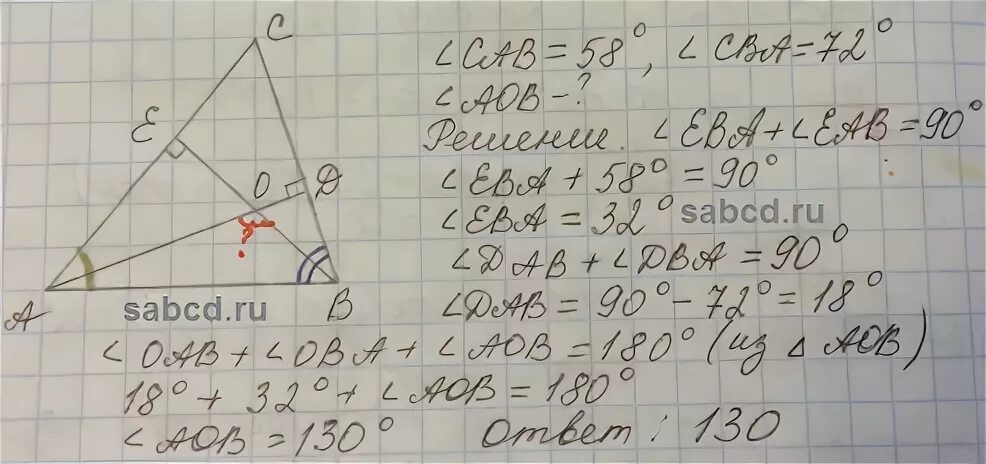 C
E
O
D
?
A
B
sabcd.ru
∠CAB = 58°, ∠CBA = 72°
∠AOB - ?
Решение. ∠EBA + ∠EAB = 90°
∠EBA + 58° = 90°
∠EBA = 32° sabcd.ru
∠DAB + ∠DBA = 90°
∠DAB = 90° - 72° = 18°
∠OAB + ∠OBA + ∠AOB = 180° (из △ AOB)
18° + 32° + ∠AOB = 180°
∠AOB = 130° Ответ: 130